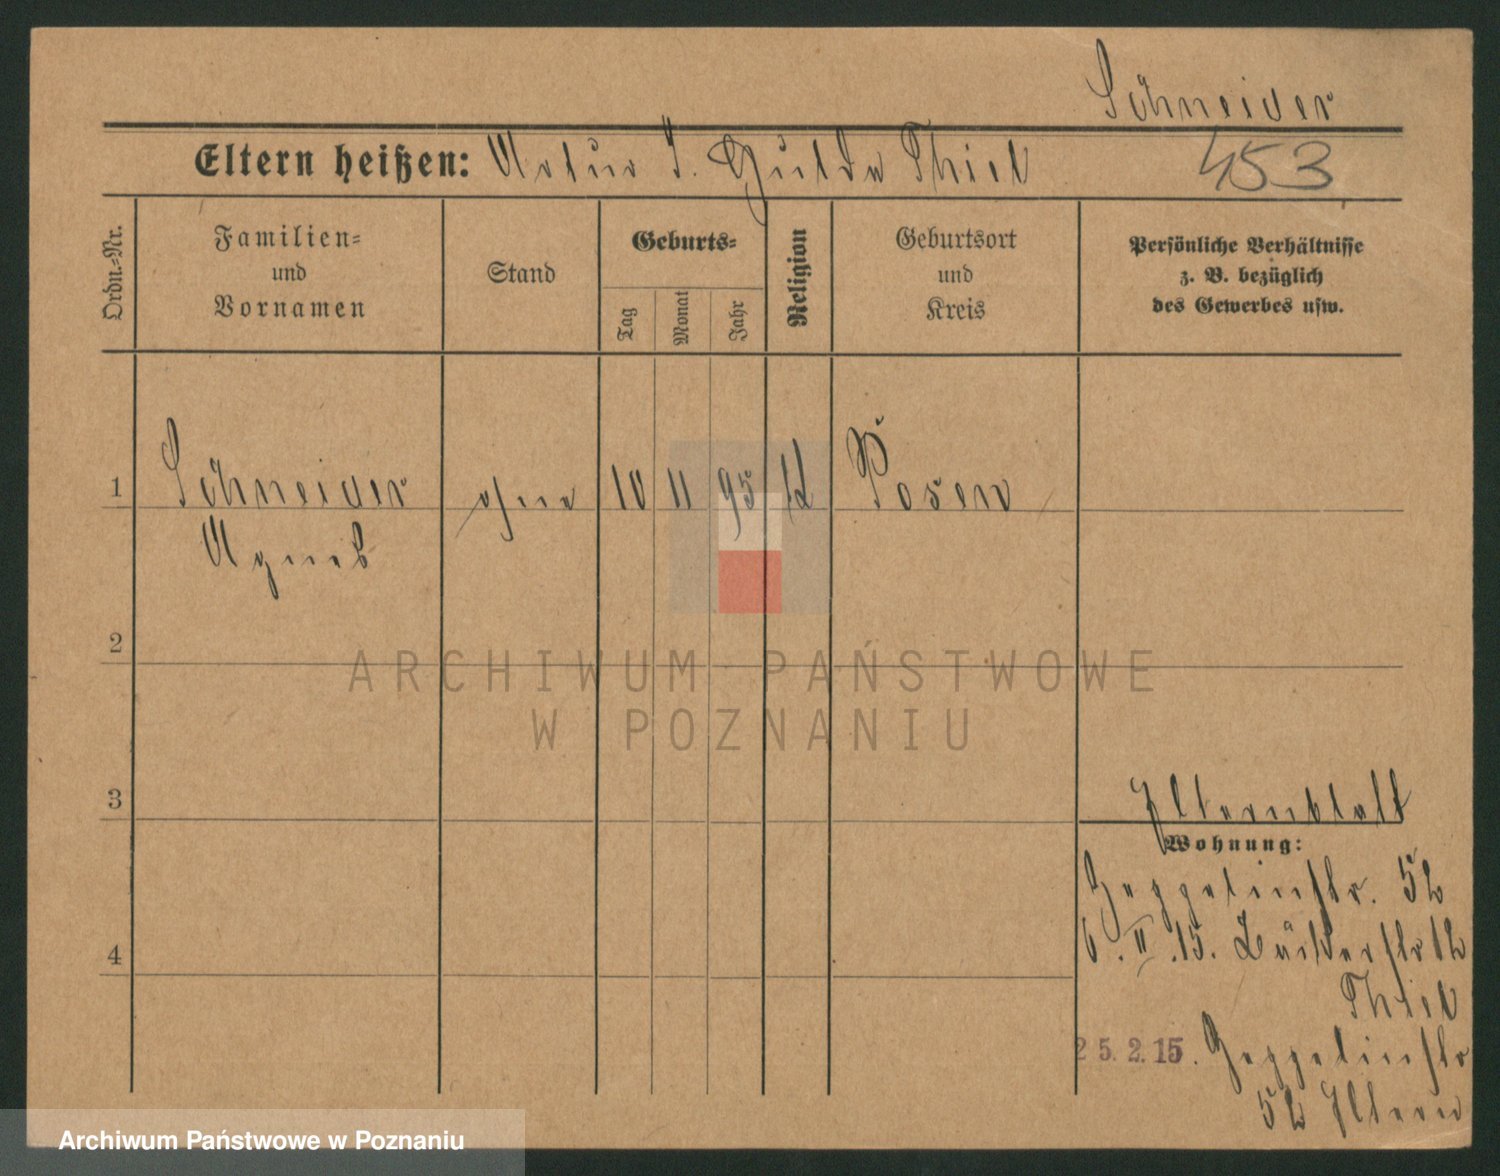 Schneider
Eltern heißen: Artur u. Hulda Thiel 453
Ordn.-Nr.
Familien-
und
Vornamen
Stand
Geburts-
Tag
Monat
Jahr
Religion
Geburtsort
und
Kreis
Persönliche Verhältnisse
z. B. bezüglich
des Gewerbes usw.
1 Schneider ohne 10 11 95 Posen
Agnes
2
ARCHIWUM PAŃSTWOWE
W POZNANIU
3
Elternblatt
Wohnung:
Zeppelinstr. 52
6. II. 15. Bäckerstr 12
4
Thiel
25.2.15. Zeppelinstr
52 Eltern
Archiwum Państwowe w Poznaniu